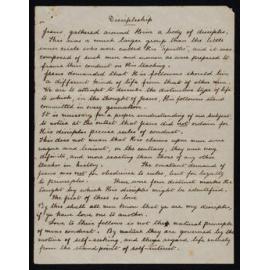 Discipleship
Jesus gathered around Him a body of disciples.
This was a much larger group than the little
inner circle who were called His "apostles", and it was
composed of such men and women as were prepared to
frame their conduct on His teaching.
Jesus demanded that His followers should live
a different kind of life from that of other men.
We are to attempt to describe the distinctive type of life
to which, in the thought of Jesus, His followers stand
committed in every generation.
It is necessary for a proper understanding of our subject
to notice at the outset that Jesus did not ordain for
His disciples precise rules of conduct.
This does not mean that His claims upon men were
vague and lenient, on the contrary, they were very
definite, and more exacting than those of any other
teacher in history. The constant demand of
Jesus was not for obedience to rules, but for loyalty
to principles. There were four distinct marks He
taught by which His disciples might be identified.
The first of these is love
By this shall all men know that ye are my disciples,
if ye have love one to another.
Love to their fellows is not the natural principle
of mens conduct. By nature they are governed by the
motive of self-seeking, and they regard life entirely
from the stand-point of self-interest.